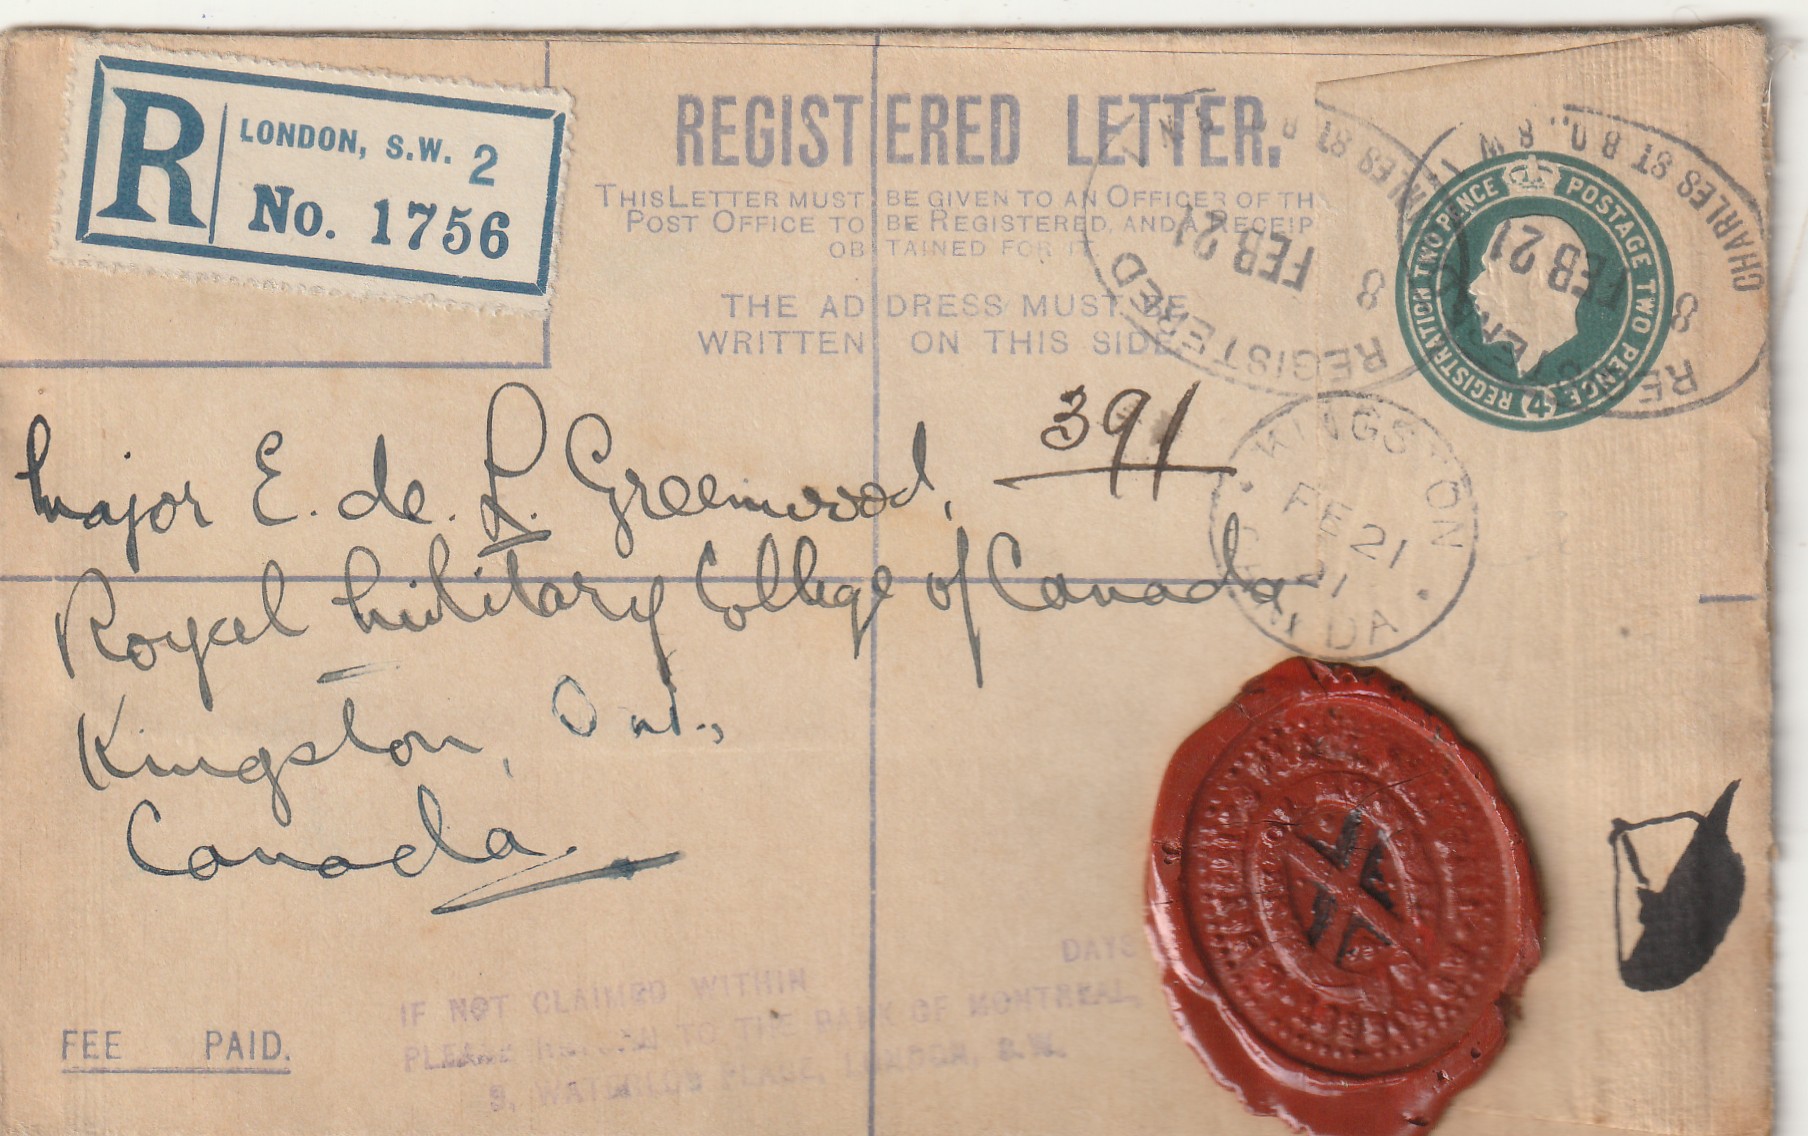 R
LONDON, S.W. 2
No. 1756
REGISTERED LETTER.
THIS LETTER MUST BE GIVEN TO AN OFFICER OF TH
POST OFFICE TO BE REGISTERED, AND A RECEIP
OBTAINED FOR IT.
THE ADDRESS MUST BE
WRITTEN ON THIS SIDE
REGISTERED
8
FEB 21
CHARLES ST B.O.
8
FEB 21
REGISTERED
REGISTRATION TWO PENCE POSTAGE TWO PENCE
4
391
KINGSTON
FE 21
21
CANADA
Major E. de. L. Greenwood,
Royal Military College of Canada
Kingston, Ont.,
Canada.
IF NOT CLAIMED WITHIN DAYS
PLEASE RETURN TO THE BANK OF MONTREAL,
9, WATERLOO PLACE, LONDON, S.W.
FEE PAID.